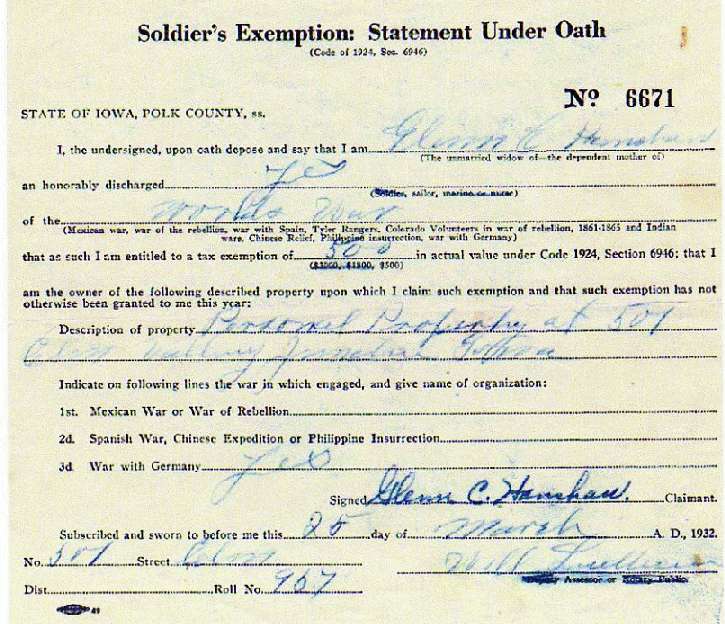 Soldier's Exemption: Statement Under Oath
(Code of 1924, Sec. 6946)
No 6671
STATE OF IOWA, POLK COUNTY, ss.
I, the undersigned, upon oath depose and say that I am Glenn C Hanshaw
(The unmarried widow of—the dependent mother of)
an honorably discharged yes
(Soldier, sailor, marine or nurse)
of the World's War
(Mexican war, war of the rebellion, war with Spain, Tyler Rangers, Colorado Volunteers in war of rebellion, 1861-1865 and Indian
wars, Chinese Relief, Philippine insurrection, war with Germany)
that as such I am entitled to a tax exemption of 500 in actual value under Code 1924, Section 6946; that I
($3000, $1800, $500)
am the owner of the following described property upon which I claim such exemption and that such exemption has not
otherwise been granted to me this year:
Description of property Personel Property at 501
Valley
Indicate on following lines the war in which engaged, and give name of organization:
1st. Mexican War or War of Rebellion
2d. Spanish War, Chinese Expedition or Philippine Insurrection
3d War with Germany yes
Signed Glenn C. Hanshaw. Claimant.
Subscribed and sworn to before me this 25 day of March A. D., 1932.
No. 501 Street
Will
Assessor or Notary Public.
Dist. Roll No. 957
41